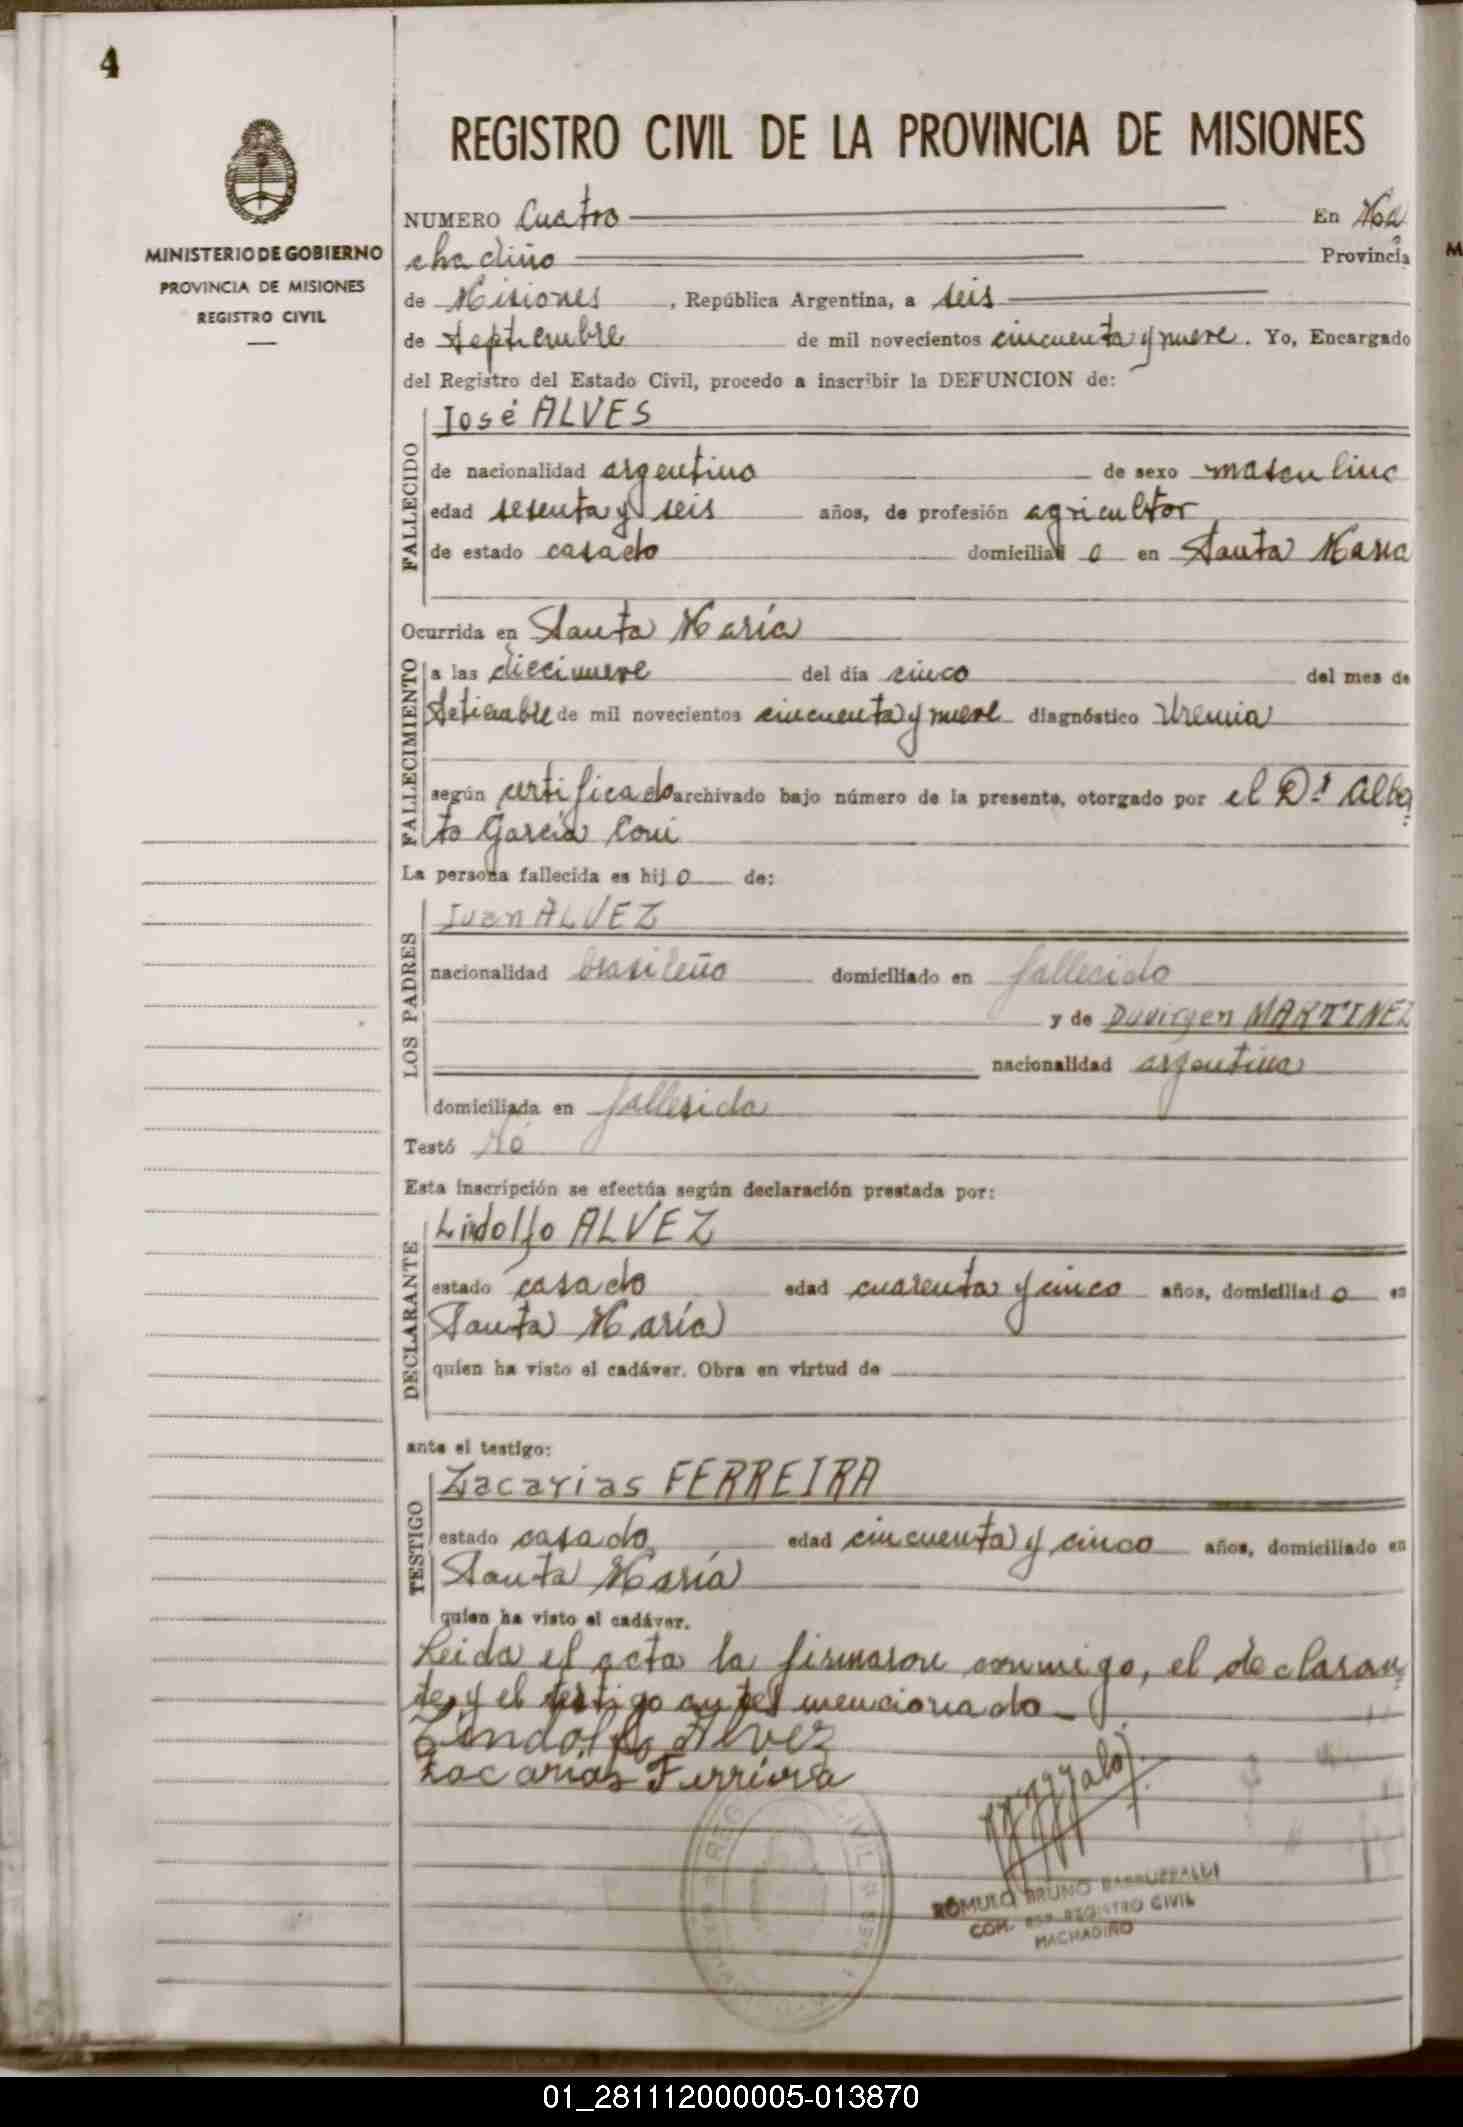 4
REGISTRO CIVIL DE LA PROVINCIA DE MISIONES
MINISTERIO DE GOBIERNO
PROVINCIA DE MISIONES
REGISTRO CIVIL
NUMERO Cuatro En Ma
chadiño Provincia
de Misiones, República Argentina, a seis
de Septiembre de mil novecientos cincuenta y nueve. Yo, Encargado
del Registro del Estado Civil, procedo a inscribir la DEFUNCION de:
FALLECIDO
José ALVES
de nacionalidad argentino de sexo masculino
edad sesenta y seis años, de profesión agricultor
de estado casado domiciliad o en Santa Maria
Ocurrida en Santa María
FALLECIMIENTO
a las diecinueve del día cinco del mes de
Setiembre de mil novecientos cincuenta y nueve diagnóstico Uremia
según certificado archivado bajo número de la presente, otorgado por el Dr Albe
to García Coni
La persona fallecida es hij o de:
LOS PADRES
Juan ALVEZ
nacionalidad brasileño domiciliado en fallecido
y de Duvirgen MARTINEZ
nacionalidad argentina
domiciliada en fallesida
Testó Nó
Esta inscripción se efectúa según declaración prestada por:
DECLARANTE
Lindolfo ALVEZ
estado casado edad cuarenta y cinco años, domiciliad o en
Santa María
quien ha visto el cadáver. Obra en virtud de
ante el testigo:
TESTIGO
Zacarias FERREIRA
estado casado edad cincuenta y cinco años, domiciliado en
Santa María
quien ha visto el cadáver.
Leida el acta la firmaron conmigo, el declaran
te, y el testigo antes mencionado
Lindolfo Alvez
Zacarias Ferriera
ROMULO BRUNO
COM. REGISTRO CIVIL
MACHADIÑO
01_281112000005-013870